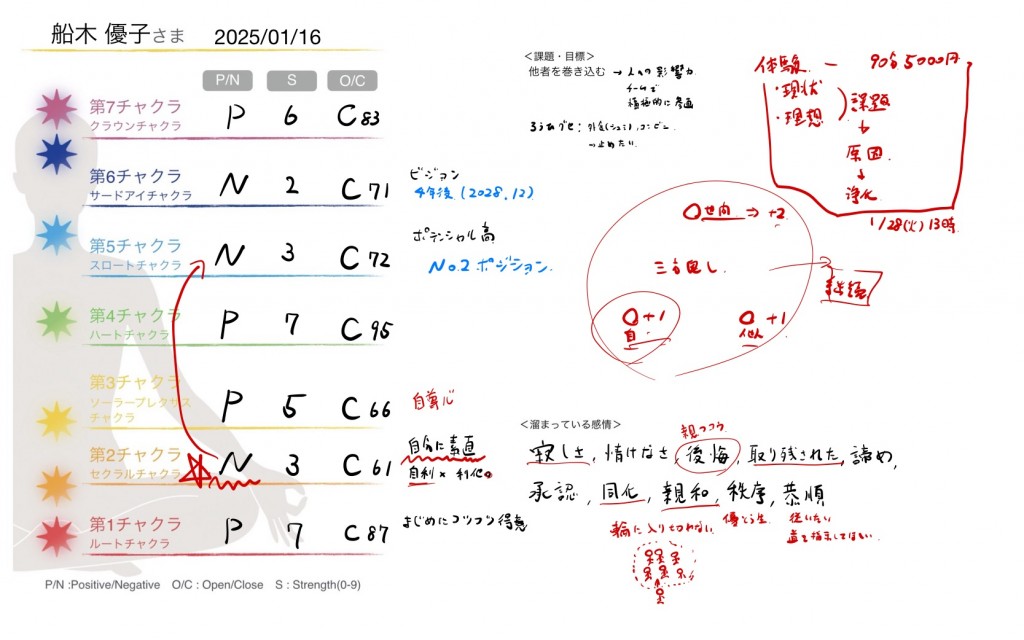 船木 優子さま 2025/01/16
P/N S O/C
第7チャクラ
クラウンチャクラ
P 6 C 83
第6チャクラ
サードアイチャクラ
N 2 C 71
ビジョン
4年後 (2028.12)
第5チャクラ
スロートチャクラ
N 3 C 72
ポテンシャル高
No.2 ポジション
第4チャクラ
ハートチャクラ
P 7 C 95
第3チャクラ
ソーラープレクサス
チャクラ
P 5 C 66
自尊心
第2チャクラ
セクラルチャクラ
N 3 C 61
自分に素直
自利 × 利他
第1チャクラ
ルートチャクラ
P 7 C 87
まじめにコツコツ得意
P/N :Positive/Negative O/C : Open/Close S : Strength(0-9)
<課題・目標>
他者を巻き込む → 人への影響力
チームで
積極的に参画
→ 止めたい
体験 — 90分 5000円
・現状
・理想
課題
↓
原因
↓
浄化
1/28(火) 13時
世間 ⇒ +2
三方良し
+1
自
+1
他人
<溜まっている感情>
親
寂しさ, 情けなさ, 後悔, 取り残された, 諦め,
承認, 同化, 親和, 秩序, 恭順
輪に入り切れない
従いたい